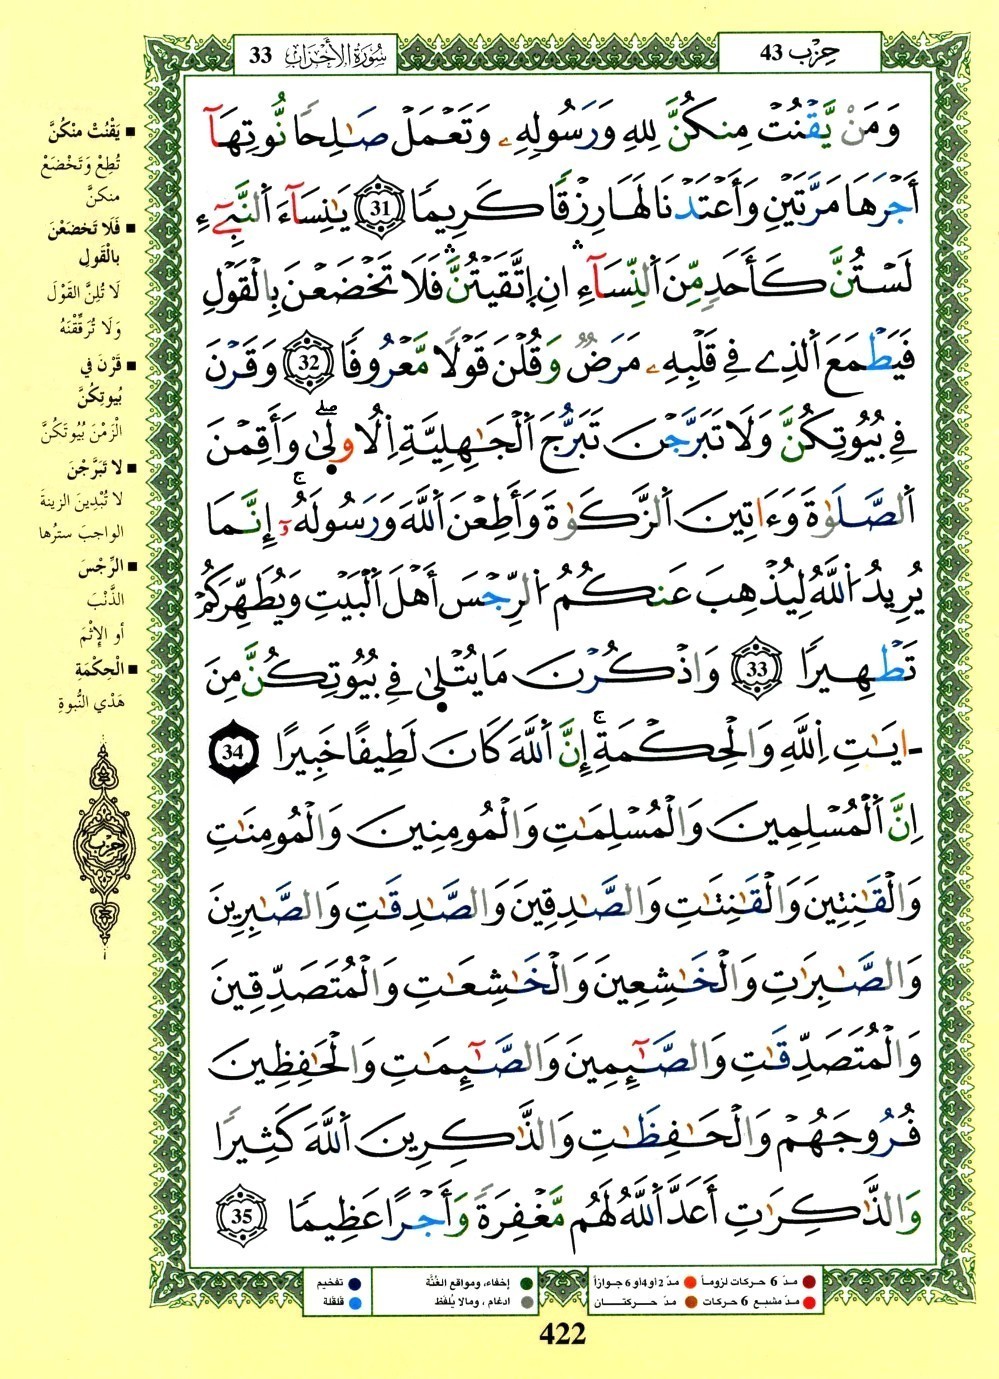 سُورَةُ الأَحْزَاب 33
حِزْب 43
وَمَنْ يَّقْنُتْ مِنكُنَّ لِلهِ وَرَسُولِهِۦ وَتَعْمَلْ صَٰلِحاً نُّوتِهَآ
أَجْرَهَا مَرَّتَيْنِ وَأَعْتَدْنَا لَهَا رِزْقاً كَرِيماً 31 يَٰنِسَآءَ اَلنَّبِےٓءِ
لَسْتُنَّ كَأَحَدٍ مِّنَ اَلنِّسَآءِ انِ اِتَّقَيْتُنَّ فَلَا تَخْضَعْنَ بِالْقَوْلِ
فَيَطْمَعَ اَلذِے فِے قَلْبِهِۦ مَرَضٌ وَقُلْنَ قَوْلاً مَّعْرُوفاً 32 وَقَرْنَ
فِے بُيُوتِكُنَّ وَلَا تَبَرَّجْنَ تَبَرُّجَ اَلْجَٰهِلِيَّةِ اِلُاولَىٰ وَأَقِمْنَ
اَلصَّلَوٰةَ وَءَاتِينَ اَلزَّكَوٰةَ وَأَطِعْنَ اَللَّهَ وَرَسُولَهُۥٓ إِنَّمَا
يُرِيدُ اُللَّهُ لِيُذْهِبَ عَنكُمُ اُلرِّجْسَ أَهْلَ اَلْبَيْتِ وَيُطَهِّرَكُمْ
تَطْهِيراً 33 وَاذْكُرْنَ مَا يُتْلَىٰ فِے بُيُوتِكُنَّ مِنَ
ـايَٰتِ اِللَّهِ وَالْحِكْمَةِ إِنَّ اَللَّهَ كَانَ لَطِيفاً خَبِيراً 34
اِنَّ اَلْمُسْلِمِينَ وَالْمُسْلِمَٰتِ وَالْمُومِنِينَ وَالْمُومِنَٰتِ
وَالْقَٰنِتِينَ وَالْقَٰنِتَٰتِ وَالصَّٰدِقِينَ وَالصَّٰدِقَٰتِ وَالصَّٰبِرِينَ
وَالصَّٰبِرَٰتِ وَالْخَٰشِعِينَ وَالْخَٰشِعَٰتِ وَالْمُتَصَدِّقِينَ
وَالْمُتَصَدِّقَٰتِ وَالصَّٰٓئِمِينَ وَالصَّٰٓئِمَٰتِ وَالْحَٰفِظِينَ
فُرُوجَهُمْ وَالْحَٰفِظَٰتِ وَالذَّٰكِرِينَ اَللَّهَ كَثِيراً
وَالذَّٰكِرَٰتِ أَعَدَّ اَللَّهُ لَهُم مَّغْفِرَةً وَأَجْراً عَظِيماً 35
■ يَقْنُتْ مِنْكُنَّ
تُطِعْ وَتَخْضَعْ
منكنَّ
■ فَلَا تَخضَعْنَ
بالْقَولِ
لَا تُلِنَّ القَوْلَ
وَلَا تُرَقِّقْنَهُ
■ قَرْنَ فِي
بُيوتِكُنَّ
الْزَمْنَ بُيُوتَكُنَّ
■ لا تَبَرَّجْنَ
لا تُبْدِينَ الزينةَ
الواجبَ سترُها
■ الرِّجْسَ
الذَّنْبَ
أو الإِثْمَ
■ الْحِكْمَةِ
هَدْي النُّبوةِ
حِزْب
مدّ 6 حركات لزوماً
مدّ 2 أو 4 أو 6 جوازاً
إخفاء، ومواقع الغُنَّة
تفخيم
مدّ مشبع 6 حركات
مدّ حركتان
ادغام، ومالا يُلفَظ
قلقلة
422